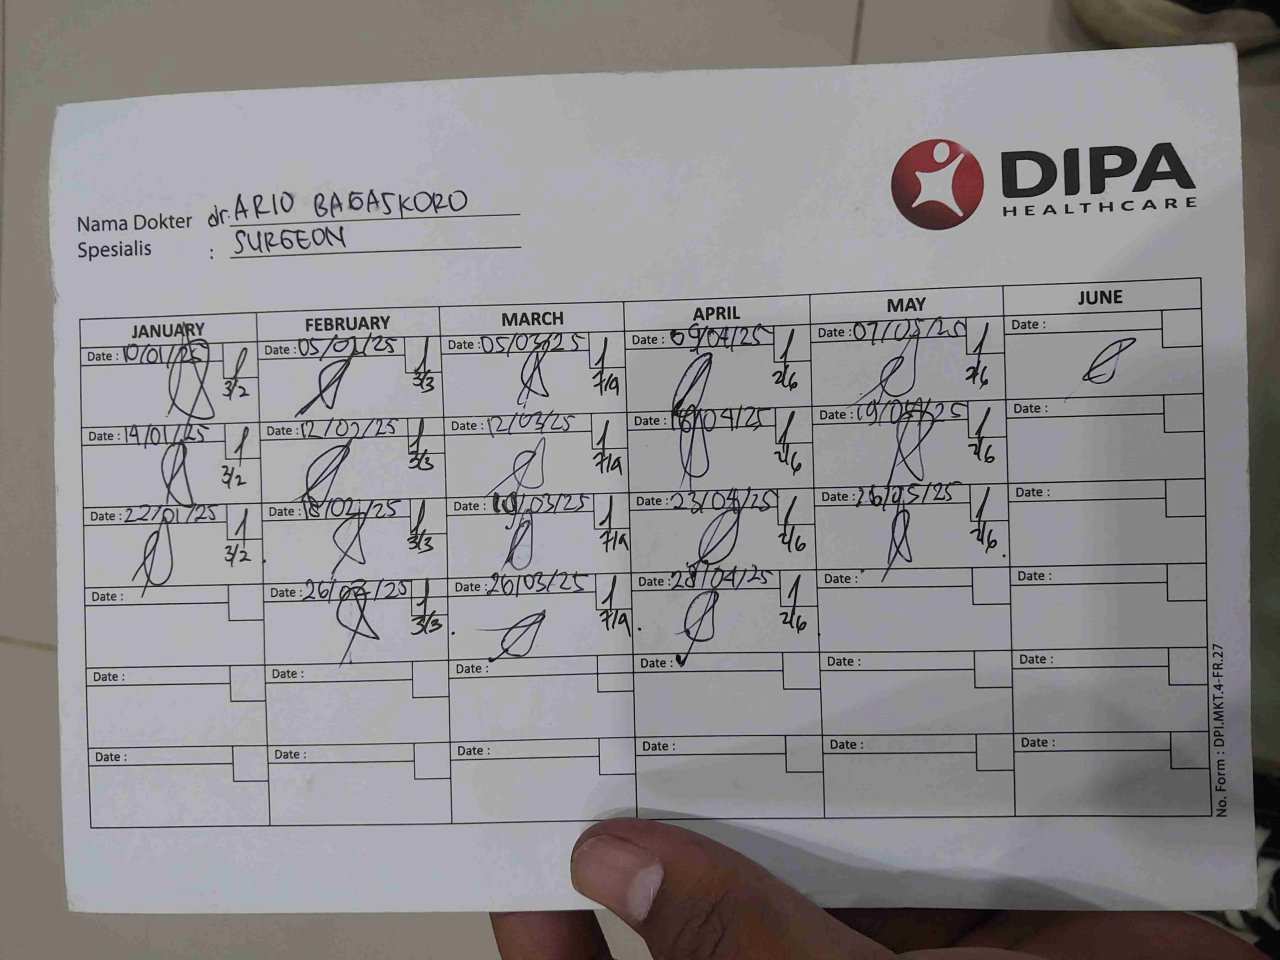 DIPA
HEALTHCARE
Nama Dokter dr. ARIO BAGASKORO
Spesialis : SURGEON
JANUARY FEBRUARY MARCH APRIL MAY JUNE
Date : 10/01/25 1 Date : 05/02/25 1 Date : 05/03/25 1 Date : 09/04/25 1 Date : 07/05/25 1 Date :
3/2 3/3 7/9 2/6 2/6
Date : 14/01/25 1 Date : 12/02/25 1 Date : 12/03/25 1 Date : /04/25 1 Date : 1 Date :
3/2 3/3 7/9 2/6 2/6
Date : 22/01/25 1 Date : 18/02/25 1 Date : /03/25 1 Date : 23/04/25 1 Date : 26/05/25 1 Date :
3/2 3/3 7/9 2/6 2/6
Date : Date : 26/02/25 1 Date : 26/03/25 1 Date : 28/04/25 1 Date : Date :
3/3 7/9 2/6
Date : Date : Date : Date : Date : Date :
Date : Date : Date : Date : Date : Date :
No. Form : DPI.MKT.4-FR.27